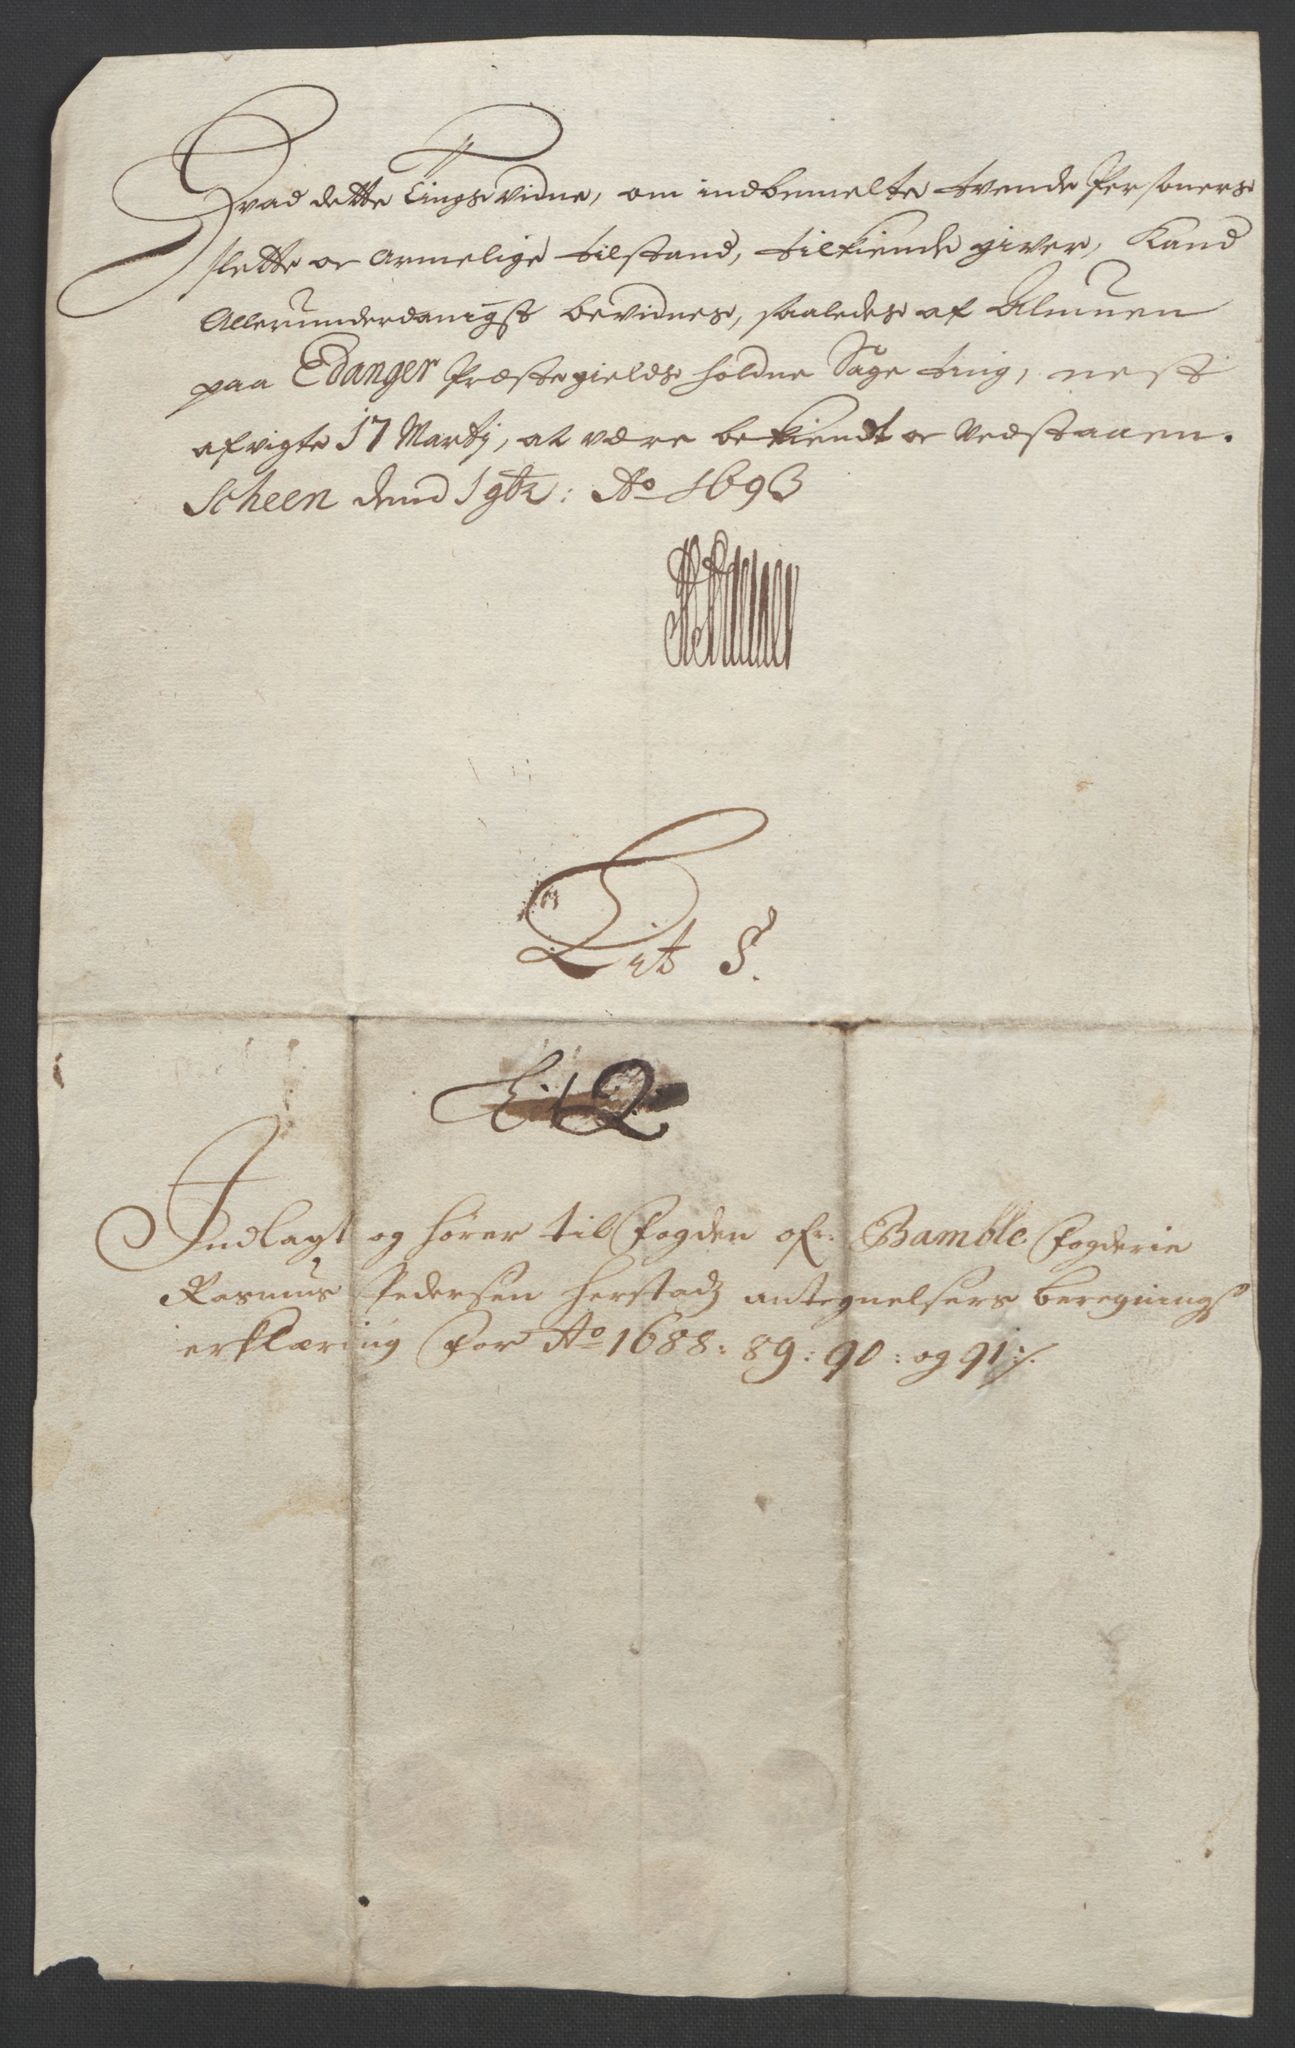 Hvad dette Tings vidne, om indbemelte tvende Persohners
slette oc Armelige tilstand, tilkiende giver, Kand
Allerunderdanigst bevidnes, saaledes af Almuen
paa Edanger Præstegields holdne Sage ting, nest
afvigte 17 Martij, at være bekiendt oc Vedstaaen.
Scheen dend 1 9br: Ao 1693
Lit S.
Lit Q
Indlagt og hører til Fogden ofr. Bamble Fogderie
Rasmus Pedersen herstadz antegnelsers beregnings
erklæring for Ao 1688: 89: 90: og 91:/.